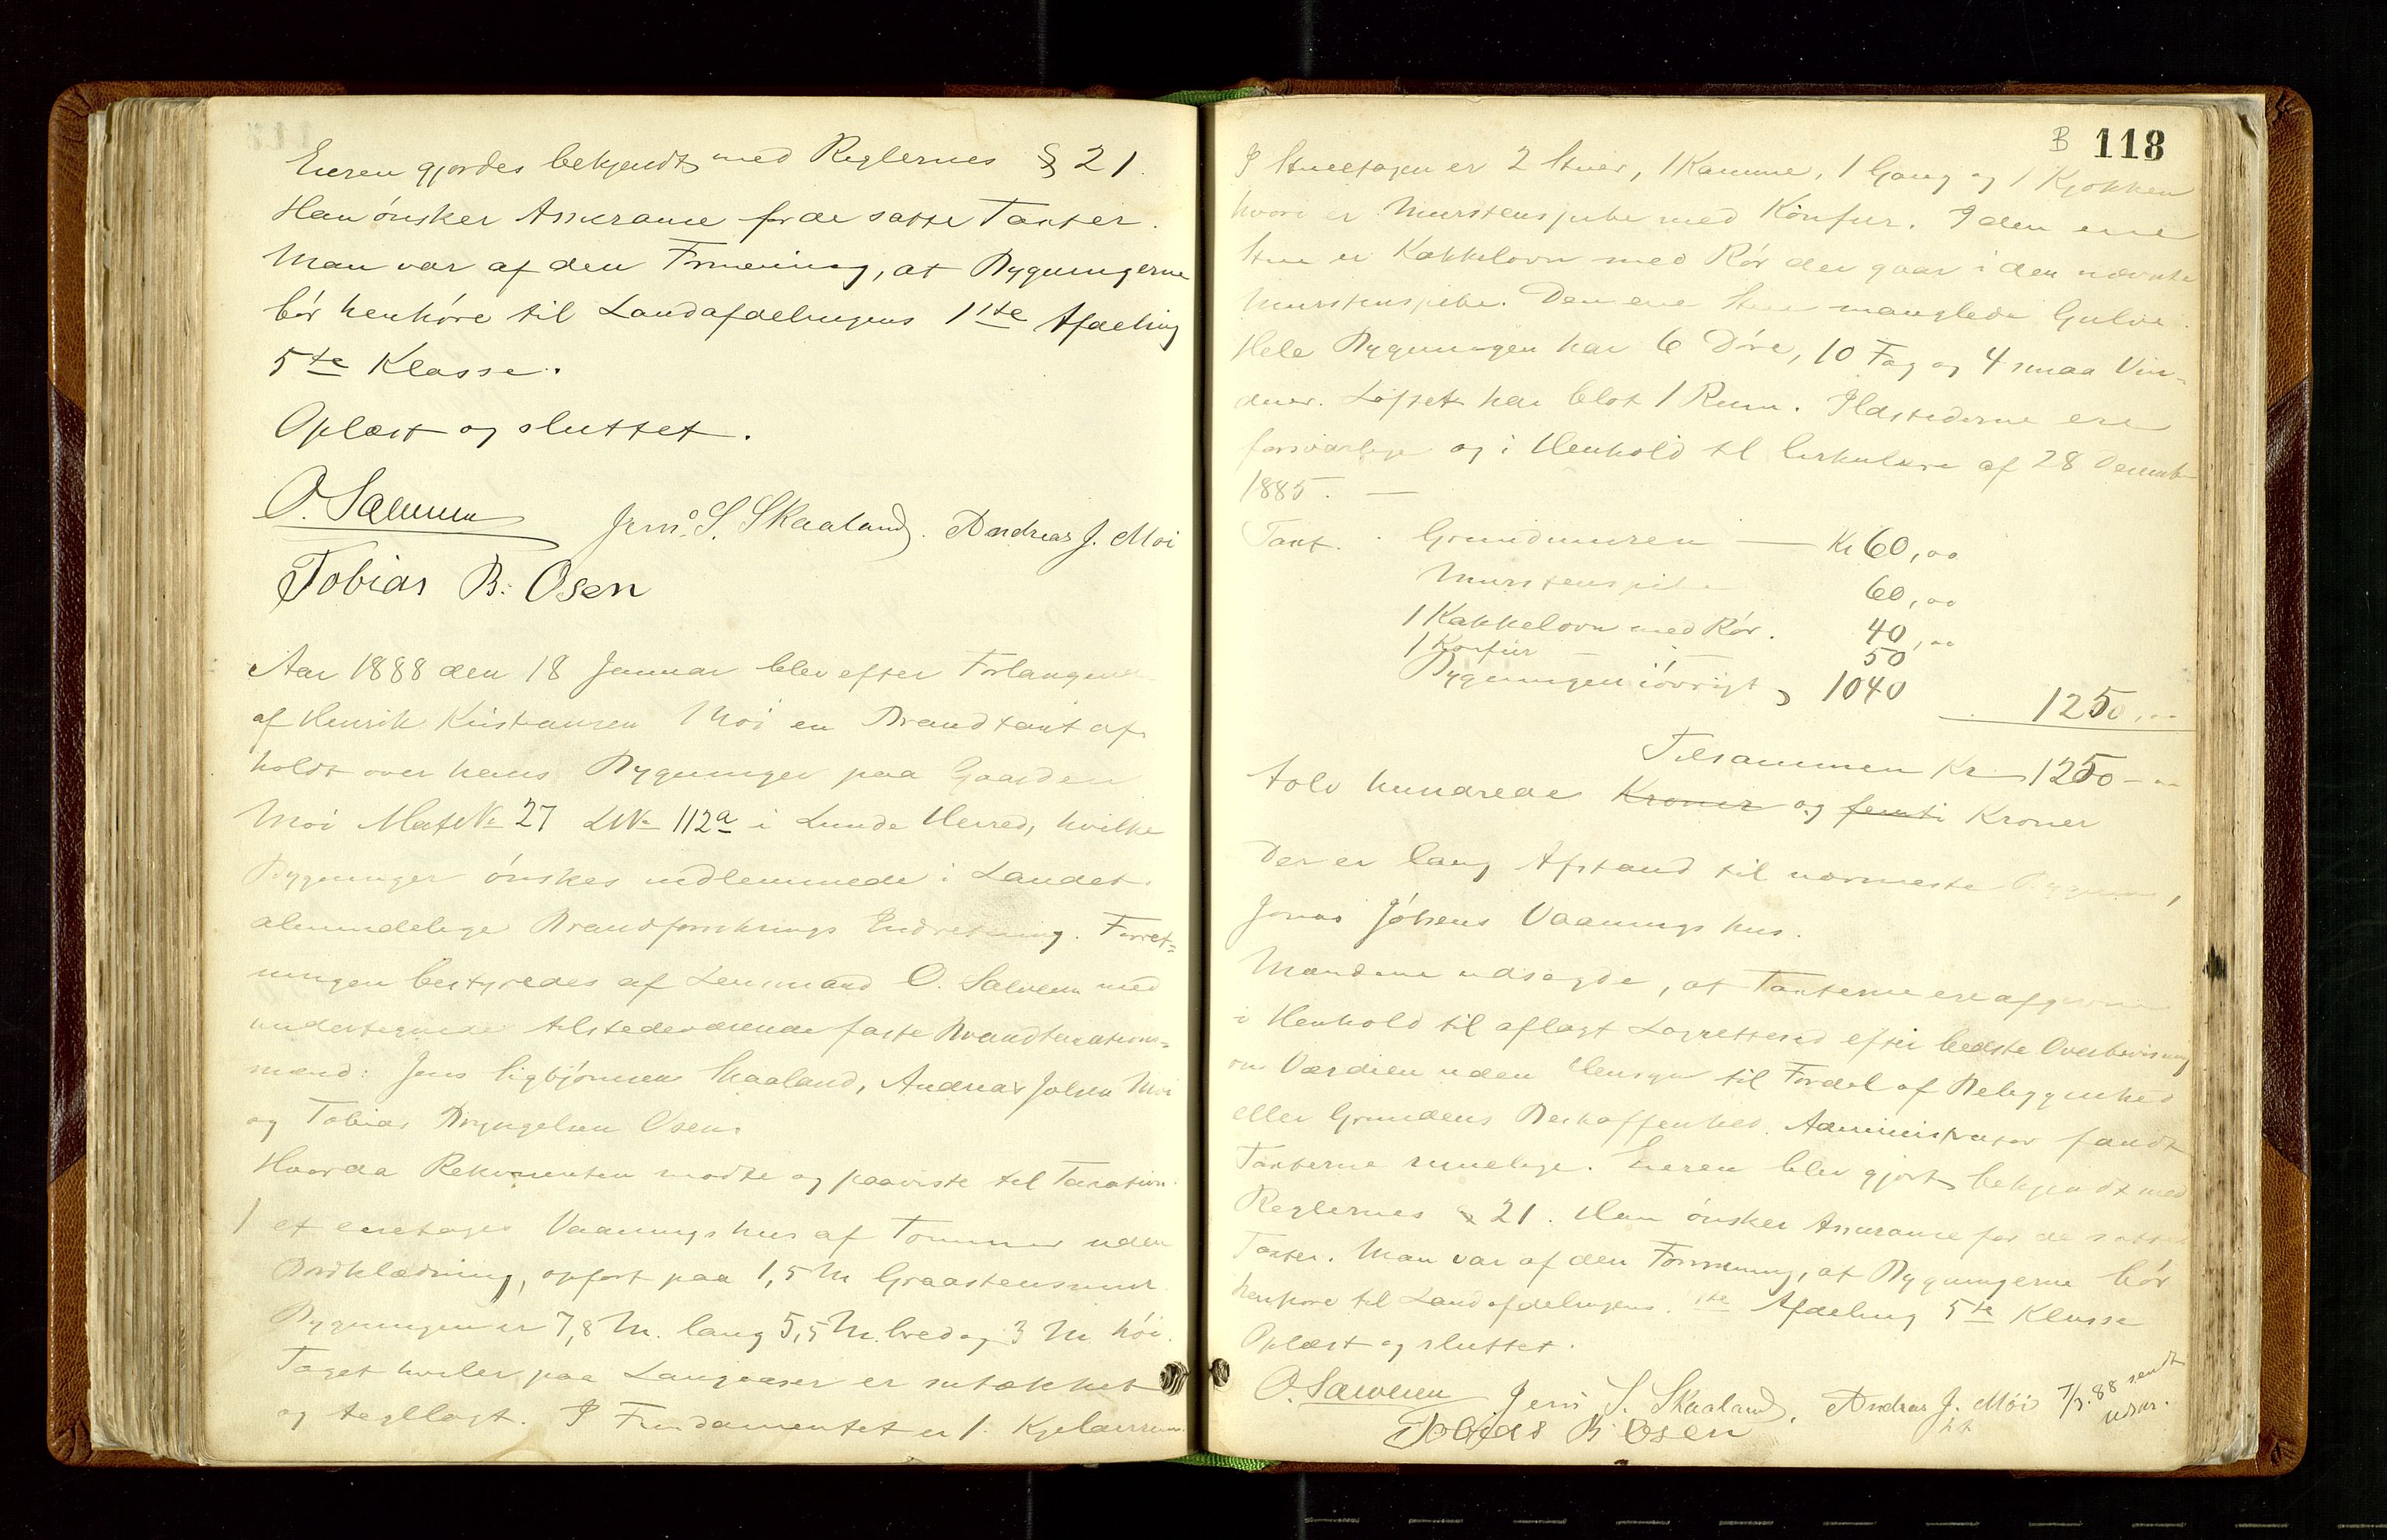 Eieren gjordes bekjendt med Reglernes § 21.
Han ønsker Assurance for de satte Taxter.
Man var af den Formening, at Bygningerne
bør henhøre til Landafdelingens 1ste Afdeling
5te Klasse.
Oplæst og sluttet.
O. Salvesen Jens. S. Skaaland. Andreas J. Moi
Tobias B. Osen
Aar 1888 den 18 Januar blev efter Forlangende
af Henrik Kristiansen Moi en Brandtaxt af-
holdt over hans Bygninger paa Gaarden
Moi Mat№ 27 L№ 112a i Lunde Herred, hvilke
Bygninger ønskes indlemmede i Landets
almindelige Brandforsikrings Indretning. Forret=
ningen bestyredes af Lensmand O. Salvesen med
undertegnede tilstedeværende faste Brandtaxations=
mænd: Jens Sigbjørnsen Skaaland, Andreas Jolsen Moi
og Tobias Bryngelsen Osen.
Hvorda Rekvirenten mødte og paaviste til Taxation.
1 et eneetages Vaaningshus af Tømmer uden
Bordklædning, opført paa 1,5 M Graastensmur.
Bygningen er 7,8 M. lang 5,5 M. bred og 3 M høi.
Taget hviler paa Langaaser er sutækket
og tegllagt. I Fundamentet er 1 Kjelderrum.
B 118
I Stueetagen er 2 Stuer, 1 Kammer, 1 Gang og 1 Kjøkken
hvori er Murstenspibe med Konfur. I den ene
Stue er Kakkelovn med Rør der gaar i den nævnte
Murstenspibe. Den ene Stue manglede Gulve.
Hele Bygningen har 6 Døre, 10 Fag og 4 smaa Vin=
duer. Loftet har blot 1 Rum. Ildstederne ere
forsvarlige og i Henhold til Cirkulære af 28 Decemb
1885. —
Taxt. Grundmuren — Kr 60,00
Murstenspibe 60,00
1 Kakkelovn med Rør. 40,00
1 Konfur — 50
Bygningen iøvrigt 1040 1250,00
Tilsammen Kr 1250-00
tolv hundrede Kroner og femti Kroner
Der er lang Afstand til nærmeste Bygning,
Jonas Jolsens Vaaningshus.
Mændene udsagde, at Taxterne ere afgivne
i Henhold til aflagt Lagretteed efter bedste Overbevisning
om Værdien uden Hensyn til Fordel af Beliggenhed
eller Grundens Beskaffenhed. Administrator fandt
Taxterne rimelige. Eieren blev gjort bekjendt med
Reglernes § 21. Han ønsker Assurance for de satte
Taxter. Man var af den Formening, at Bygningerne bør
henhøre til Landafdelingens 1ste Afdeling 5te Klasse
Oplæst og sluttet.
O. Salvesen Jens S. Skaaland. Andreas J. Moi
Tobias B Osen
7/3. 88 sendt
udskr.